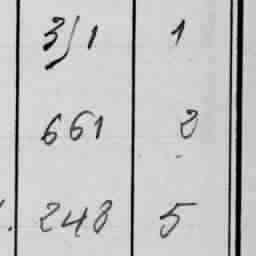 3/1 1
661 2
248 5